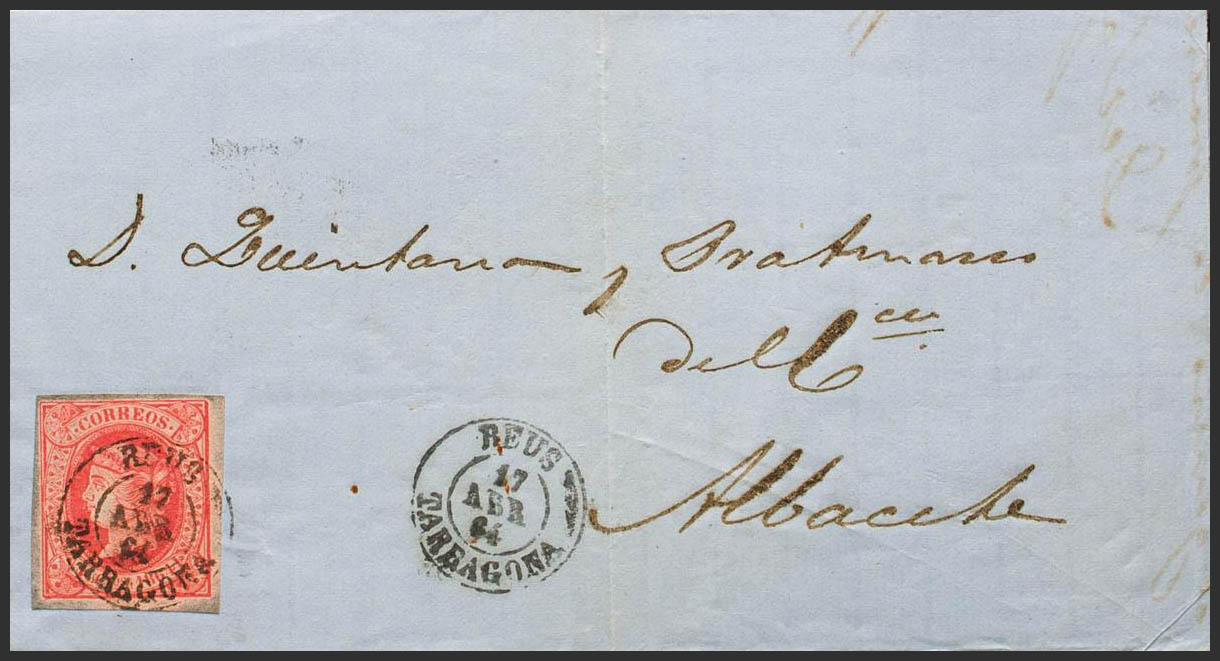 D. Quintana y Pratmarso
del C
Albacete
CORREOS
REUS
17
ABR
64
TARRAGONA
REUS
17
ABR
64
TARRAGONA